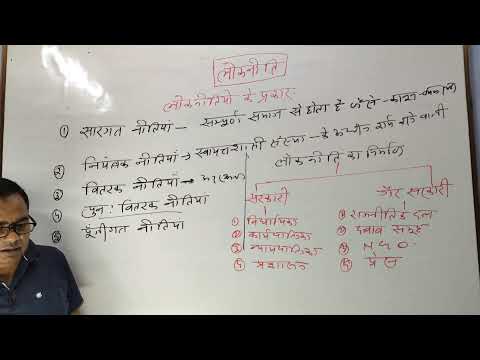 लोकनीति
लोकनीतियों के प्रकार:
① सारगत नीतियां – सम्पूर्ण समाज से होता है जैसे -
② नियंत्रक नीतियां → स्वायत्तशासी संस्था - के
③ वितरक नीतियां →
④ पुन: वितरक नीतियां
⑤ पूँजीगत नीतियां
लोकनीति का निर्माण
सरकारी
① विधायिका
② कार्यपालिका
③ न्यायपालिका
④ प्रशासन
गैर सरकारी
① राजनीतिक दल
② दबाव समूह
③ NGO.
④ प्रेस